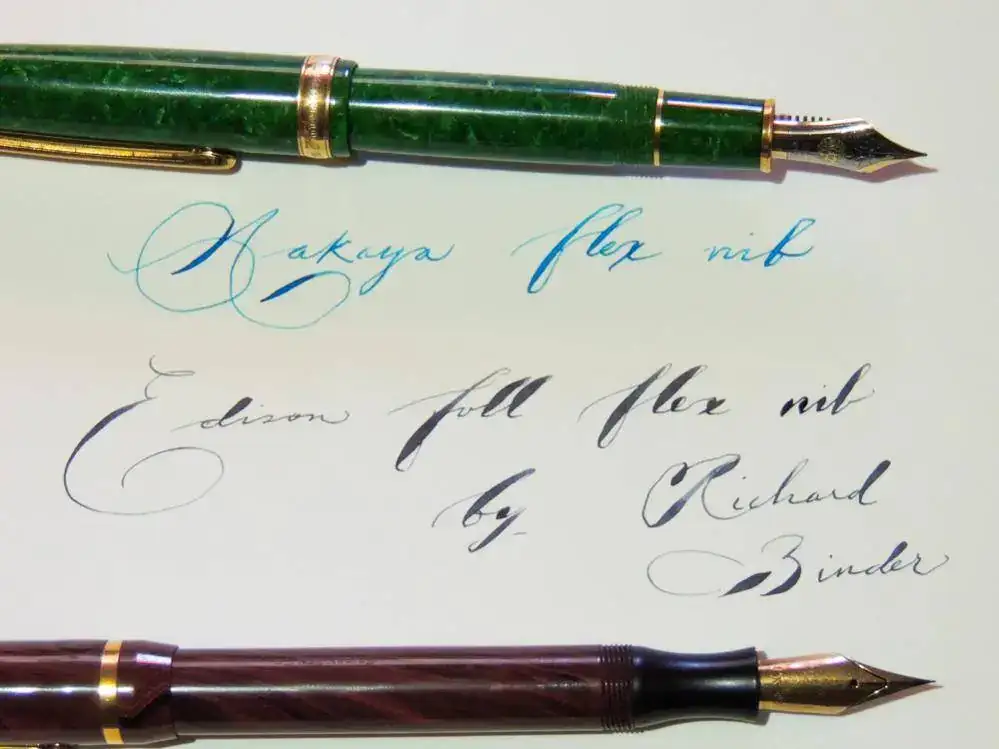 Nakaya flex nib
Edison full flex nib
by Richard
Binder